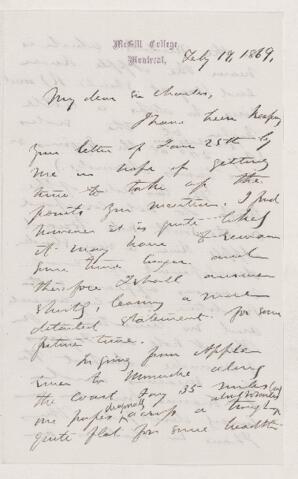 McGill College,
Montreal, Feby 19, 1869.
My dear Sir Charles,
I have been keeping
your letter of Jany 25th by
me in hope of getting
time to take up the
points you mention. I find
however it is quite likely
it may have to remain
some time longer and
therefore I shall answer
shortly, leaving a more
detailed statement for some
future time.
In going from Apple
river to Minudie along
the coast say 35 miles (
one passes diagonally across a
quite flat for some